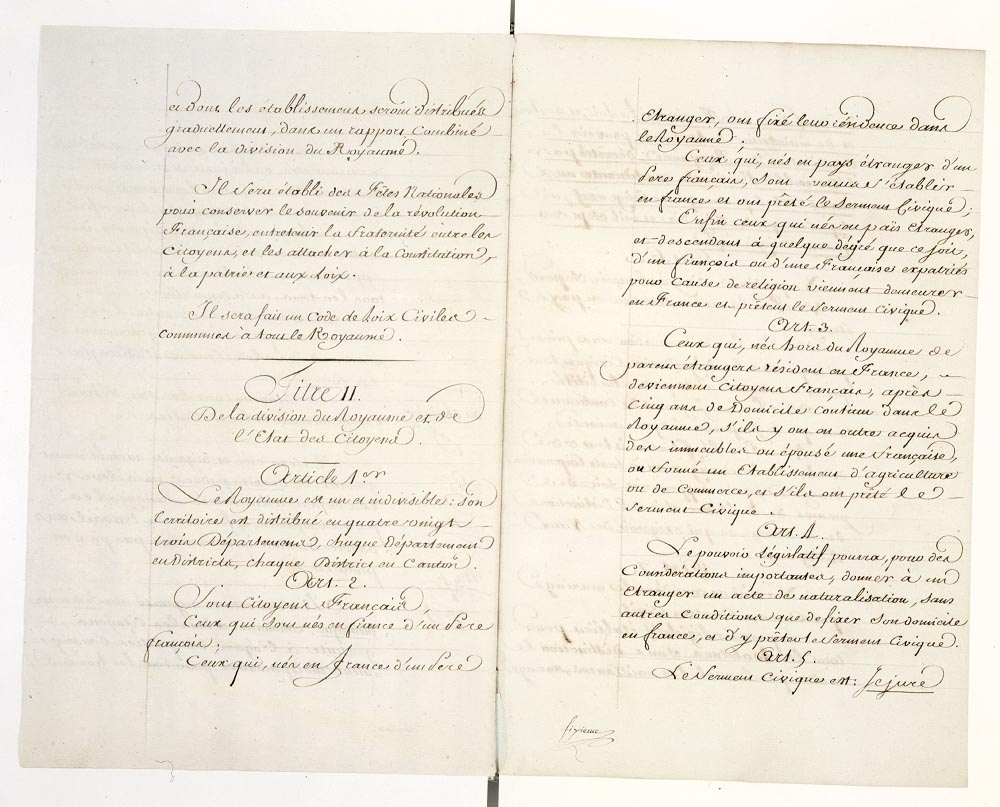 et dont les établissemens seront distribués
graduellement, dans un rapport combiné
avec la division du Royaume.
Il sera établi des Fêtes Nationales
pour conserver le souvenir de la révolution
Française, entretenir la fraternité entre les
Citoyens, et les attacher à la Constitution,
à la patrie et aux Loix.
Il sera fait un Code de Loix Civiles
communes à tout le Royaume.
Titre II.
De la division du Royaume et de
l'Etat des Citoyens.
Article 1er
Le Royaume est un et indivisible : son
territoire est distribué en quatre vingt
trois Départemens, chaque Département
en Districts, chaque District en Cantons.
Art. 2.
Sont Citoyens Français,
Ceux qui sont nés en france d'un Pere
françois ;
Ceux qui, nés en france d'un Pere
Etranger, ont fixé leur résidence dans
le Royaume ;
Ceux qui, nés en pays étranger d'un
Pere français, sont venus s'établir
en france et ont prêté le Serment Civique ;
Enfin ceux qui nés en païs Etranger,
et descendant à quelque dégré que ce soit,
d'un françois ou d'une Françaises expatriés
pour cause de religion viennent demeurer
en France et prêtent le Serment Civique.
Art. 3.
Ceux qui, nés hors du Royaume de
parens étrangers résident en France,
deviennent Citoyens Français, après
Cinq ans de Domicile continu dans le
Royaume, s'ils y ont en outre acquis
des immeubles ou épousé une française,
ou formé un Etablissement d'agriculture
ou de Commerce, et s'ils ont prêté le
Serment Civique.
Art. 4.
Le pouvoir Législatif pourra, pour des
Considérations importantes, donner à un
Etranger un acte de naturalisation, sans
autres Conditions que de fixer son domicile
en france, et d'y prêter le Serment Civique.
Art. 5.
Le Serment Civique est : Je jure
sixieme